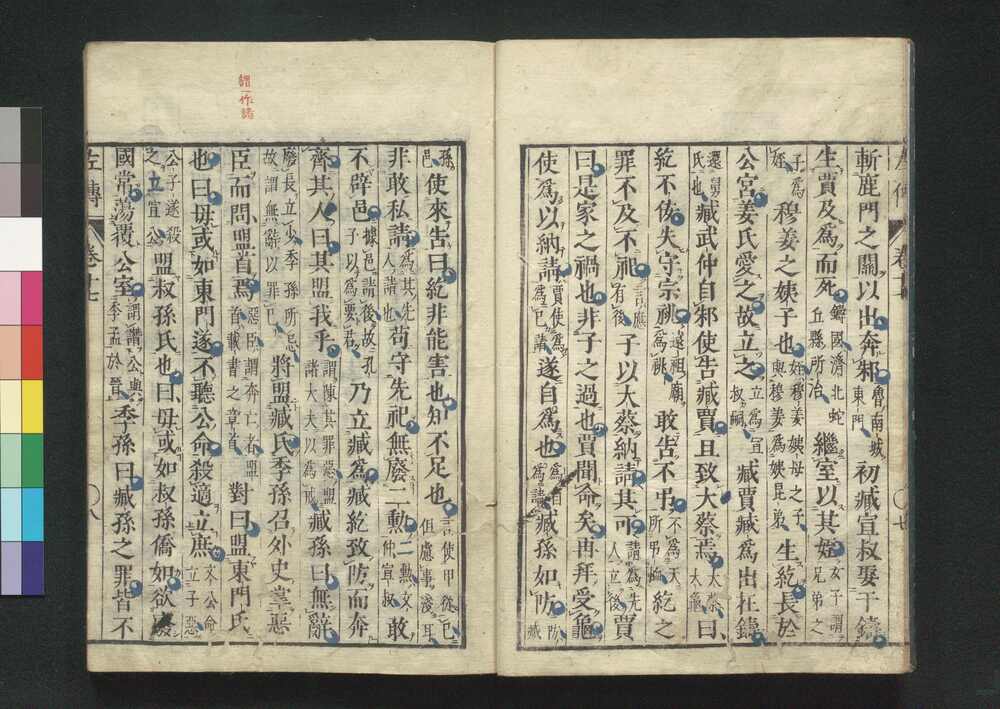 斬鹿門之關以出奔邾魯南城東門初臧宣叔娶于鑄
生賈及爲而死鑄國濟北蛇丘縣所治繼室以其姪女子謂兄弟之
子爲姪穆姜之姨子也姪穆姜姨母之子與穆姜爲姨昆弟生紇長於
公宮姜氏愛之故立之立爲宣叔嗣臧賈臧爲出在鑄
還舅氏也臧武仲自邾使告臧賈且致大蔡焉大蔡大龜曰
紇不佞失守宗祧遠祖廟爲祧敢告不弔不爲天所弔恤紇之
罪不及不祀言應有後子以大蔡納請其可請爲先人立後賈
曰是家之禍也非子之過也賈聞命矣再拜受龜
使爲以納請賈使爲爲己請遂自爲也爲自爲請臧孫如防防臧
孫邑使來告曰紇非能害也知不足也言使甲從己但慮事淺耳
非敢私請爲其先人請也苟守先祀無廢二勳二勳文仲宣叔敢
不辟邑據邑請後故孔子以爲要君乃立臧爲臧紇致防而奔
齊其人曰其盟我乎謂陳其罪惡盟諸大夫以爲戒臧孫曰無辭
廢長立少季孫所忌故謂無辭以罪己將盟臧氏季孫召外史掌惡
臣而問盟首焉惡臣謂奔亡者盟首載書之章首對曰盟東門氏
也曰毋或如東門遂不聽公命殺適立庶文公命立子惡
公子遂殺之立宣公盟叔孫氏也曰毋或如叔孫僑如欲廢
國常蕩覆公室謂譖公與季孟於晉季孫曰臧孫之罪皆不
左傳
卷十七
〇八